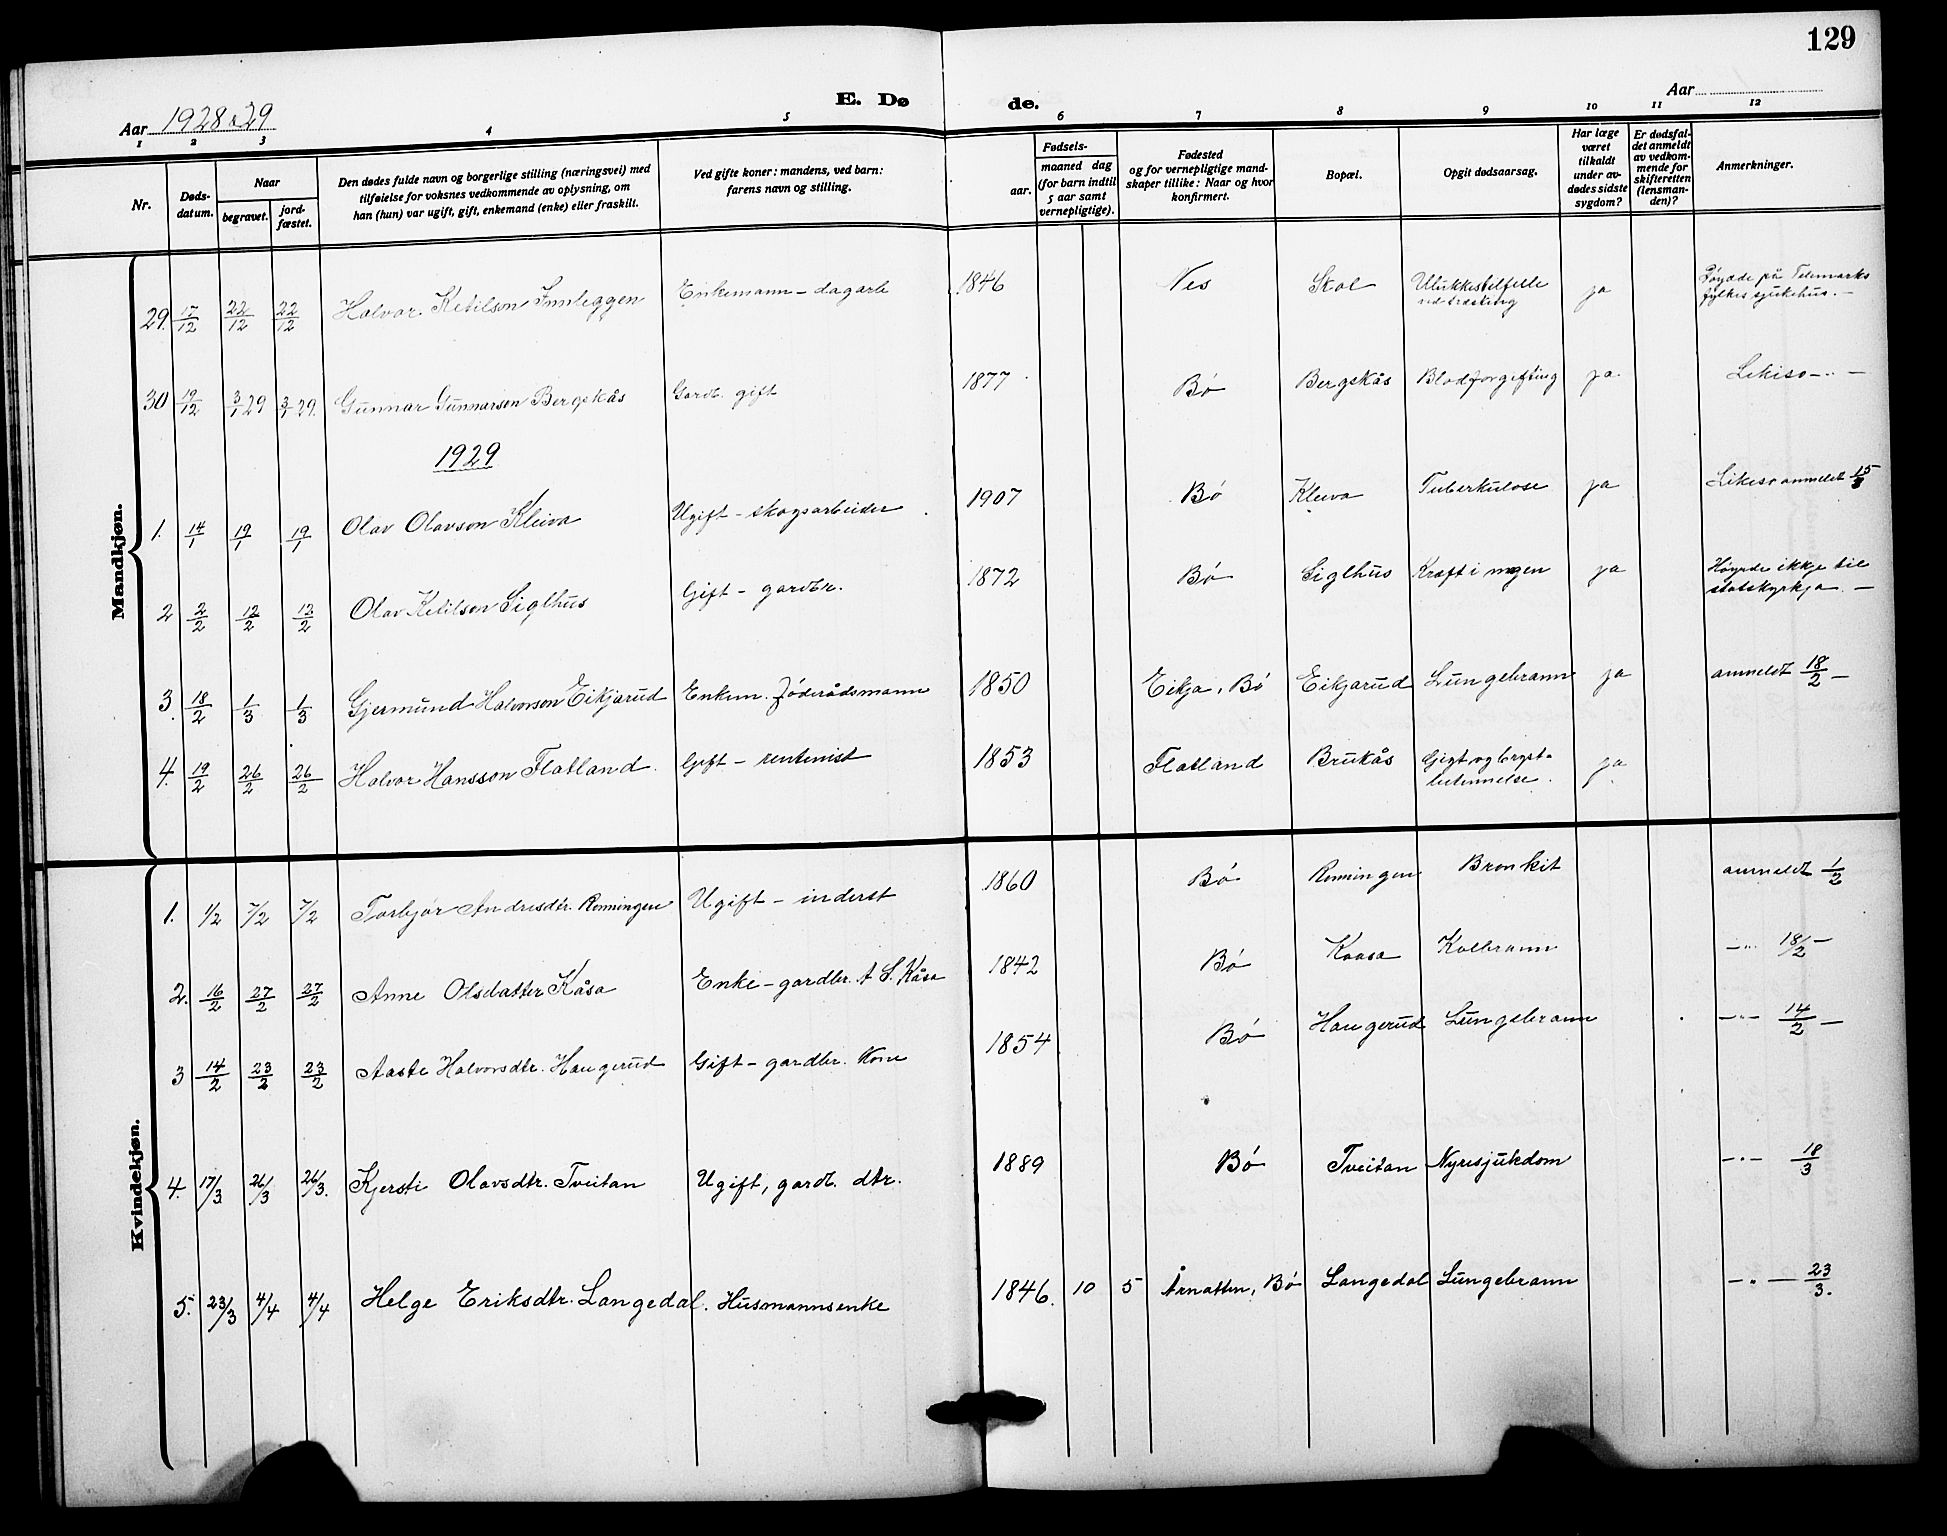 129
E. Døde.
Aar 1928 & 29
Aar
1 2 3 4 5 6 7 8 9 10 11 12
Nr.
Døds-
datum.
Naar
begravet.
jord-
fæstet.
Den dødes fulde navn og borgerlige stilling (næringsvei) med
tilføielse for voksnes vedkommende av oplysning, om
han (hun) var ugift, gift, enkemand (enke) eller fraskilt.
Ved gifte koner: mandens, ved barn:
farens navn og stilling.
Fødsels-
aar.
maaned dag
(for barn indtil
5 aar samt
vernepligtige).
Fødested
og for vernepligtige mand-
skaper tillike: Naar og hvor
konfirmert.
Bopæl.
Opgit dødsaarsag.
Har læge
været
tilkaldt
under av-
dødes sidste
sygdom?
Er dødsfal-
det anmeldt
av vedkom-
mende for
skifteretten
(lensman-
den)?
Anmerkninger.
Mandkjøn.
29. 17/12 22/12 22/12 Halvor Ketilson Innleggen Enkemann – dagarb 1846 Nes Skol Ulukkestilfelle ja Døydde på Telemarks
ved træsking fylkes sjukehus. –
30 19/12 3/1 29 3/1 29. Gunnar Gunnarsen Bergskås Gardb. gift 1877 Bø Bergskås Blodforgifting ja. Likeso –..–
1929
1. 14/1 19/1 19/1 Olav Olavson Kleiva Ugift – skogsarbeider 1907 Bø Kleiva Tuberkulose ja Likeso anmeldt 15/3
2 2/2 12/2 12/2 Olav Ketilson Siglhus Gift – gardbr. 1872 Bø Siglhus Kræft i magen ja Høyrde ikkje til
statskyrkja. –
3. 18/2 1/3 1/3 Gjermund Halvorson Eikjarud Enkem. föderådsmann 1850 Eikja, Bø Eikjarud Lungebrann ja anmeldt 18/2 –
4. 19/2 26/2 26/2 Halvor Hansson Flatland. Gift – rentenist 1853 Flatland Brukås Gigt og bryst- ja
betennelse.
Kvindekjøn.
1. 1/2 7/2 7/2 Torbjør Andresdtr. Rönningen Ugift – inderst 1860 Bø Rönningen Bronkit anmeldt 1/2
2. 16/2 27/2 27/2 Anne Olsdatter Kåsa Enke – gardbr. A S. Kåsa 1842 Bø Kaasa Kolbrann –"– 18/2 –
3 14/2 23/2 23/2 Aaste Halvorsdtr. Haugerud Gift – gardbr. kone 1854 Bø Haugerud Lungebrann –"– 14/2 –
4. 17/3 26/3 26/3. Kjersti Olavsdtr. Tveitan Ugift, gardb. dtr. 1889 Bø Tveitan Nyresjukdom –"– 18/3
5. 23/3 4/4 4/4 Helge Eriksdtr. Langedal. Husmannsenke 1846. 10 5 Årnatten, Bø Langedal Lungebrann –"– 23/3.